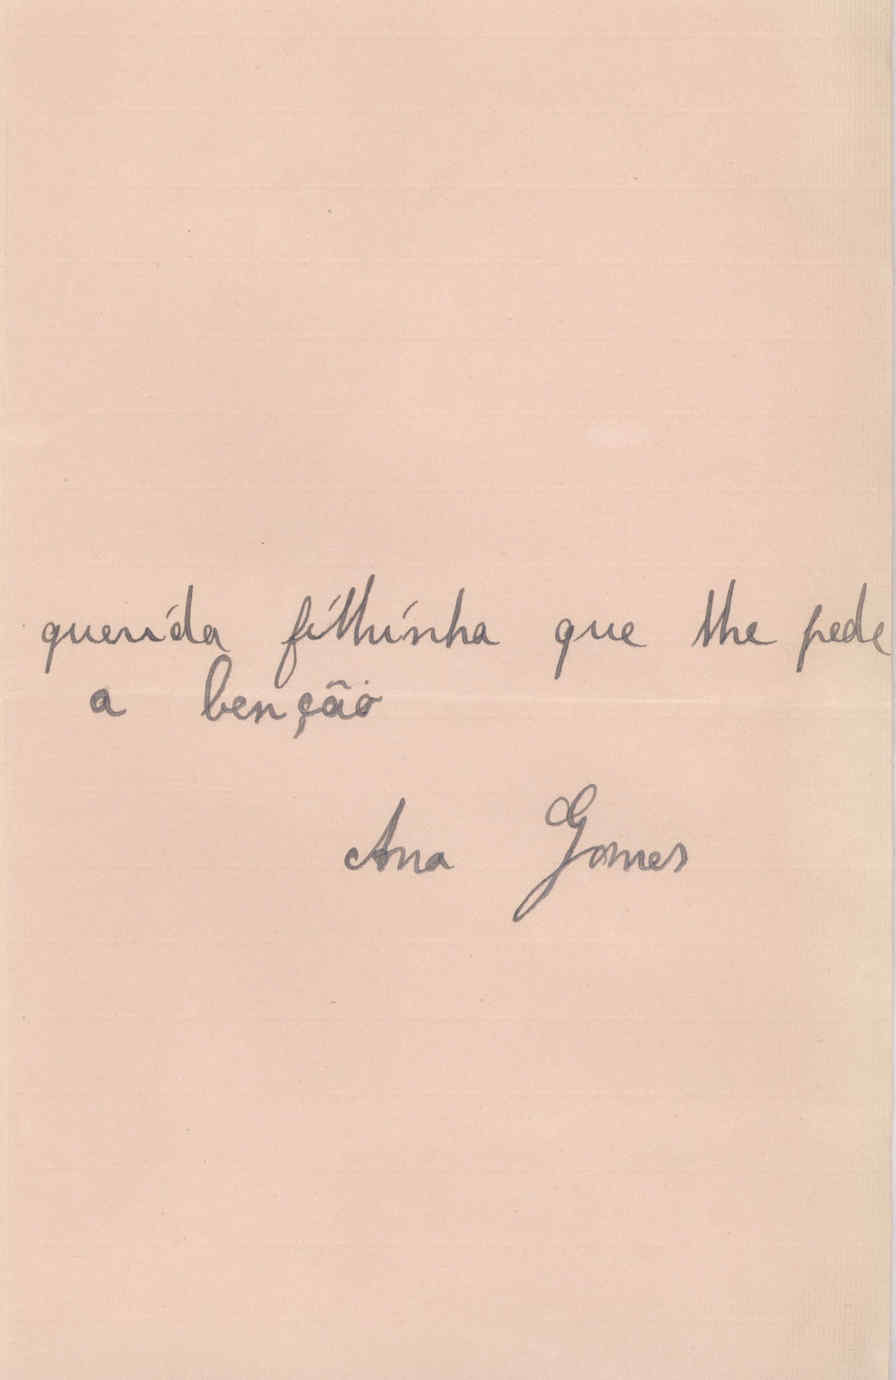 querida filhinha que lhe pede
a benção
Ana Gomes